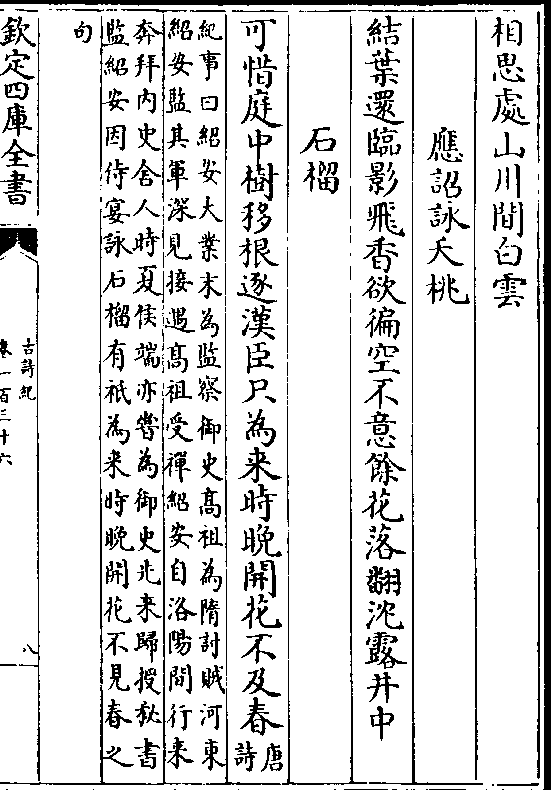 相思處山川間白雲
應詔詠夭桃
結葉還臨影飛香欲徧空不意餘花落翻沈露井中
石榴
可惜庭中樹移根逐漢臣只為来時晚開花不及春唐詩
紀事曰紹安大業末為監察御史髙祖為隋討賊河東
紹安監其軍深見接遇髙祖受禪紹安自洛陽間行来
奔拜内史舍人時夏侯端亦嘗為御史先来歸授秘書
監紹安因侍宴詠石榴有祇為来時晚開花不見春之
句
欽定四庫全書
古詩紀
卷一百三十六
八